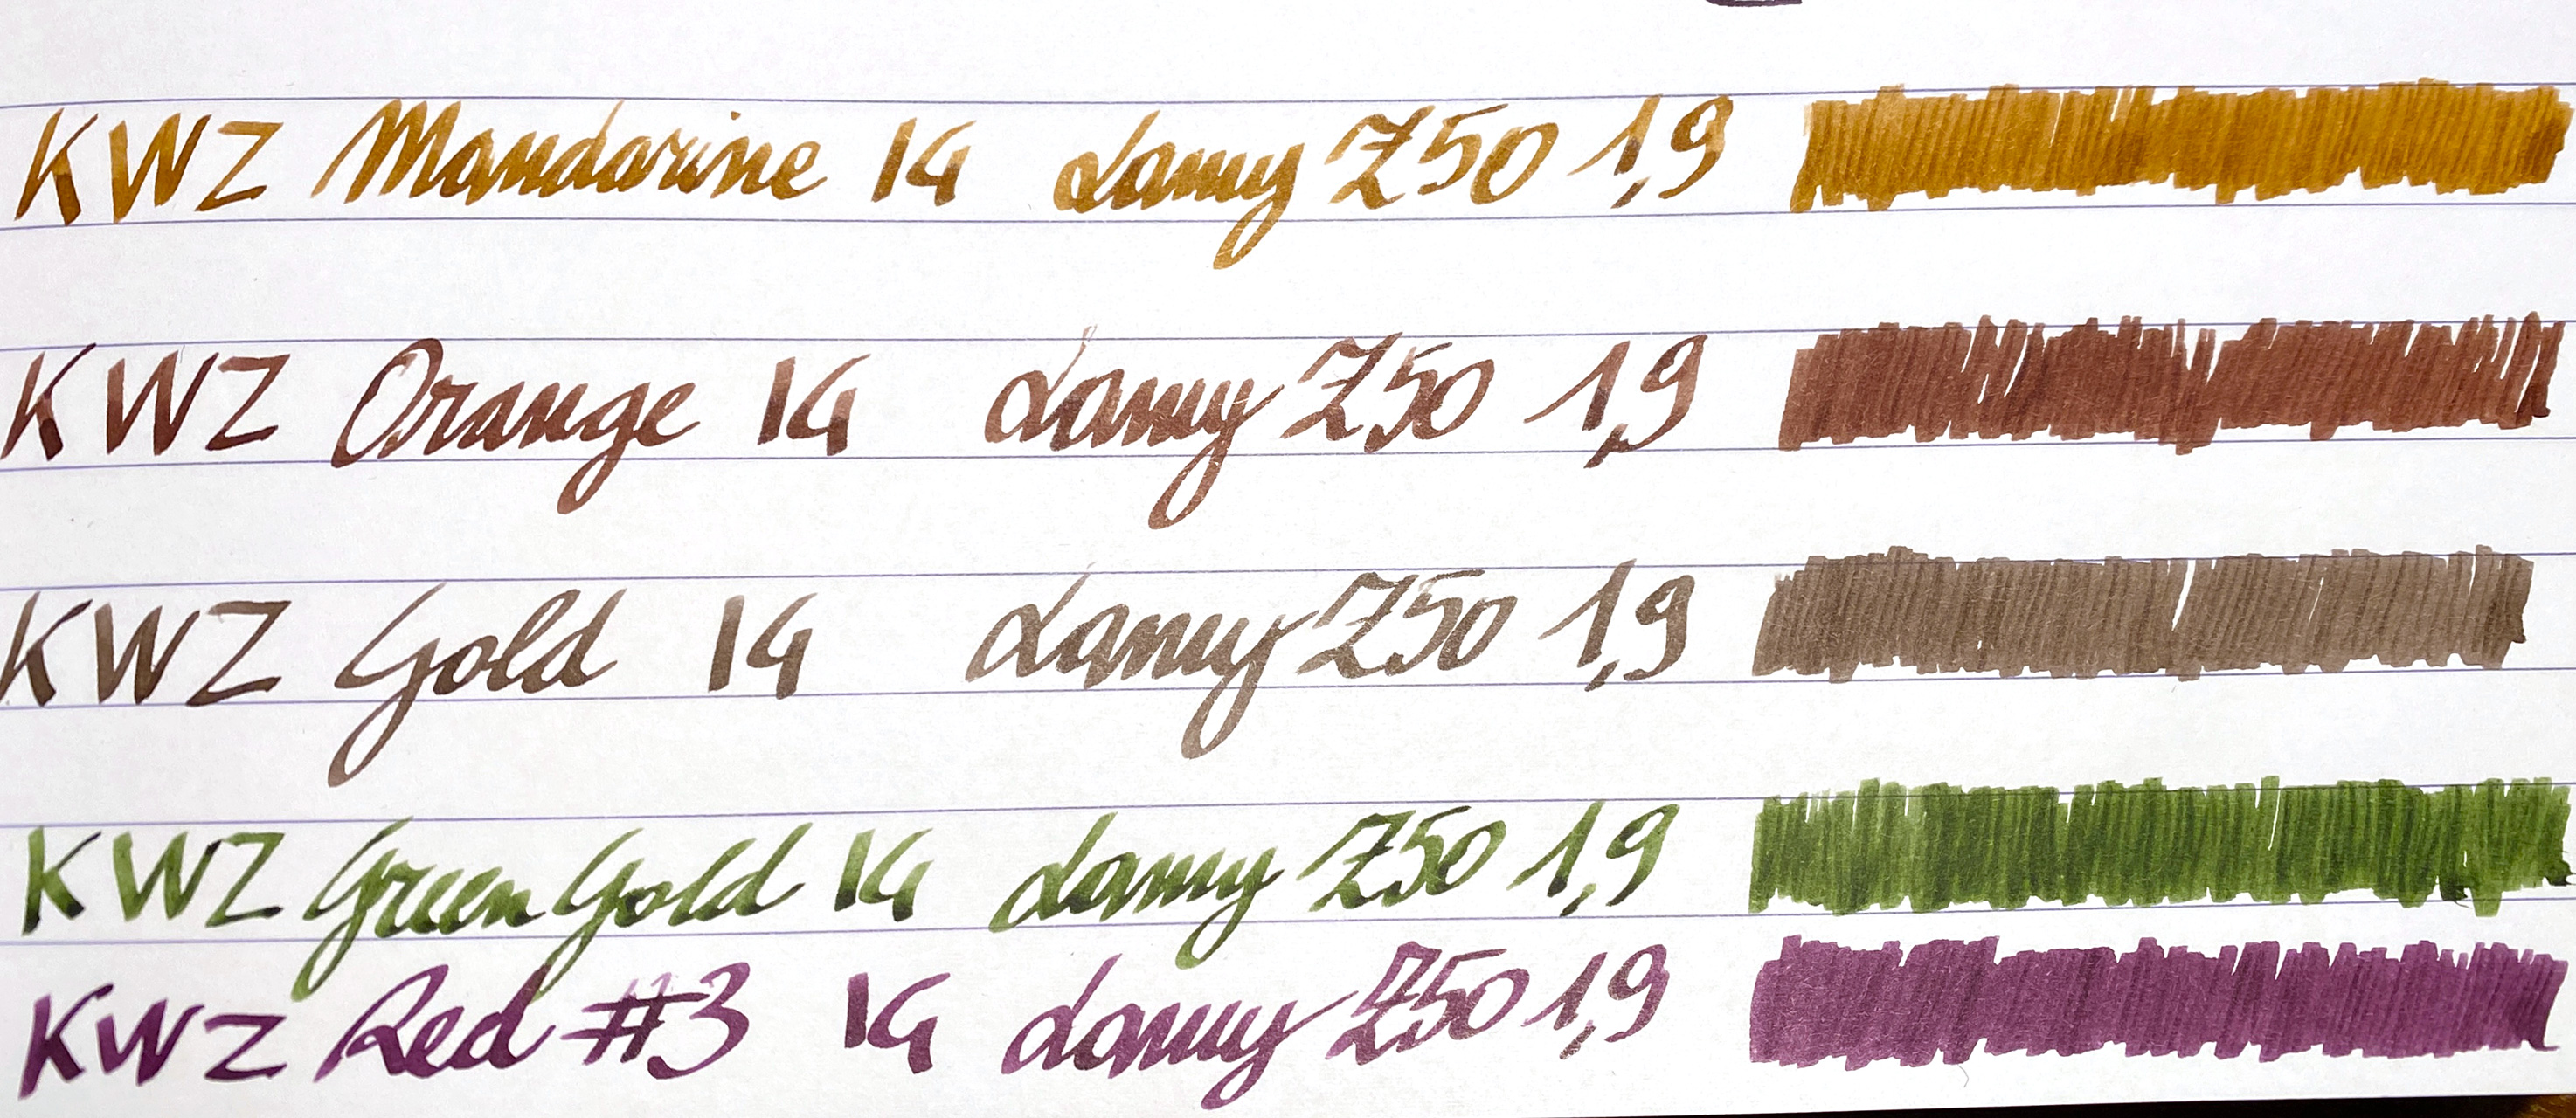 KWZ Mandarine IG Lamy Z50 1,9
KWZ Orange IG Lamy Z50 1,9
KWZ Gold IG Lamy Z50 1,9
KWZ Green Gold IG Lamy Z50 1,9
KWZ Red #3 IG Lamy Z50 1,9